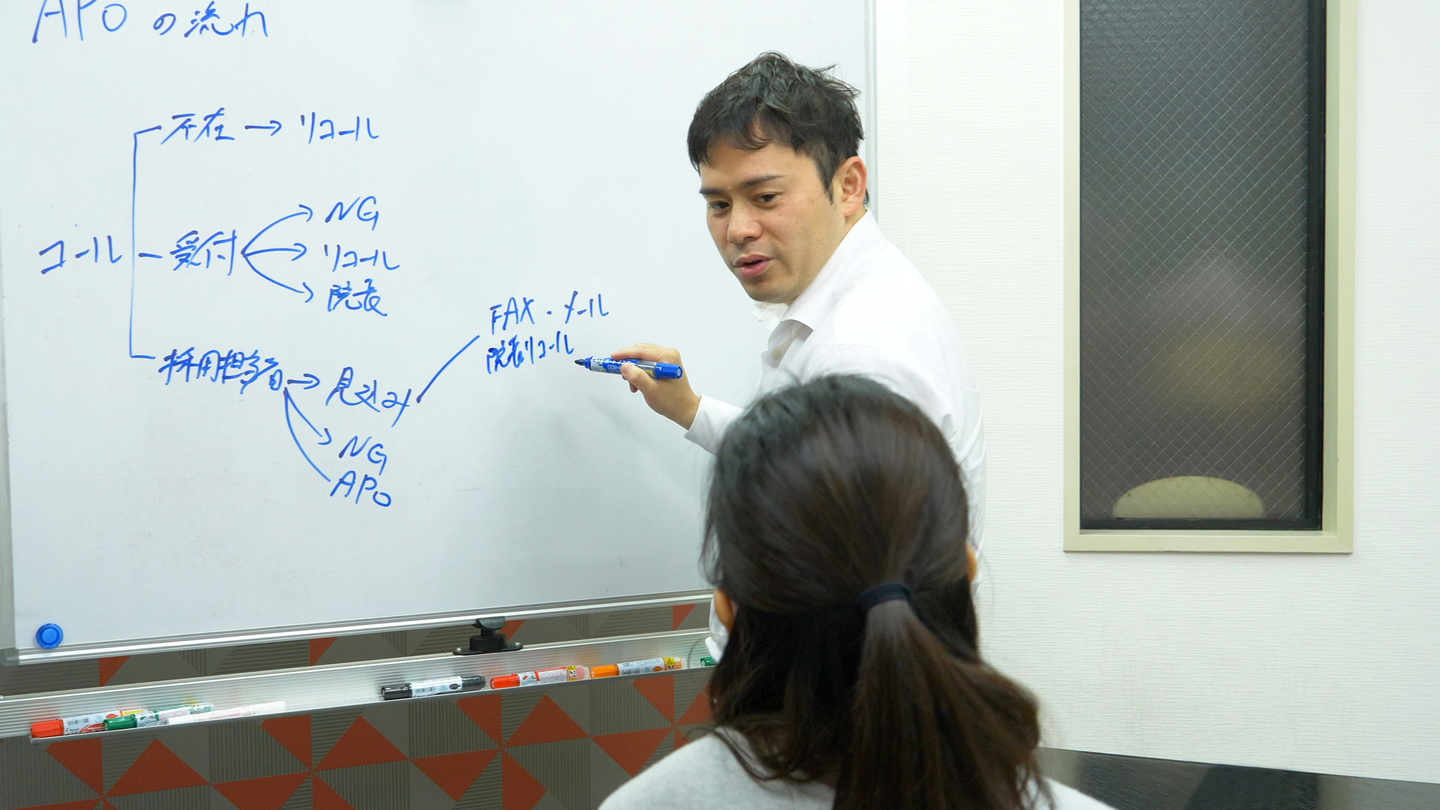 APOの流れ
不在→リコール
コール
受付
NG
リコール
院長
採用担当者→見込み
FAX・メール
院長リコール
NG
APO